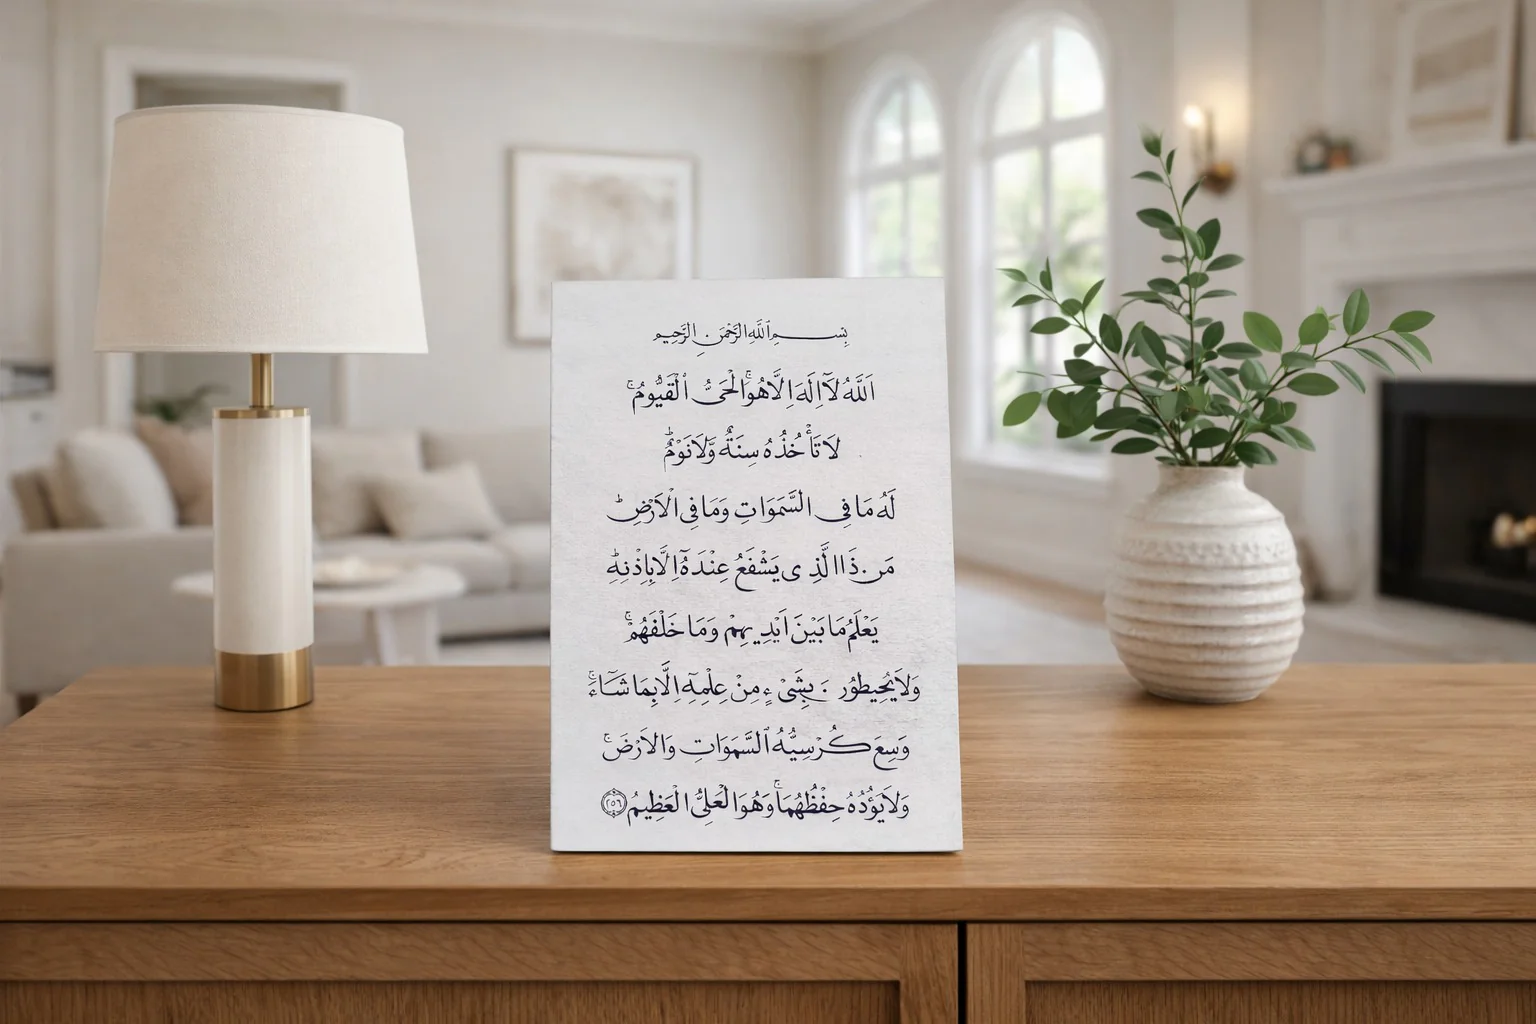 بِسْــــمِ ٱللَّهِ الرَّحْمَنِ الرَّحِيمِ
اَللَّهُ لَآ اِلَهَ اِلَّا هُوَۚ الْحَىُّ ٱلْقَيُّومُۚ
لَا تَأْخُذُهُ سِنَةٌ وَّلَا نَوْمٌؕ
لَهُ مَا فِى السَّمَوَاتِ وَمَا فِى الْاَرْضِؕ
مَن ذَا الَّذِى يَشْفَعُ عِنْدَهُٓ اِلَّا بِاِذْنِهِؕ
يَعْلَمُ مَا بَيْنَ اَيْدِيهِمْ وَمَا خَلْفَهُمْۚ
وَلَا يُحِيطُونَ بِشَىْءٍ مِنْ عِلْمِهِٓ اِلَّا بِمَا شَآءَۚ
وَسِعَ كُرْسِيُّهُ ٱلسَّمَوَاتِ وَالْاَرْضَۚ
وَلَا يَؤُدُهُ حِفْظُهُمَاۚ وَهُوَ الْعَلِىُّ الْعَظِيمُ ٢٥٦